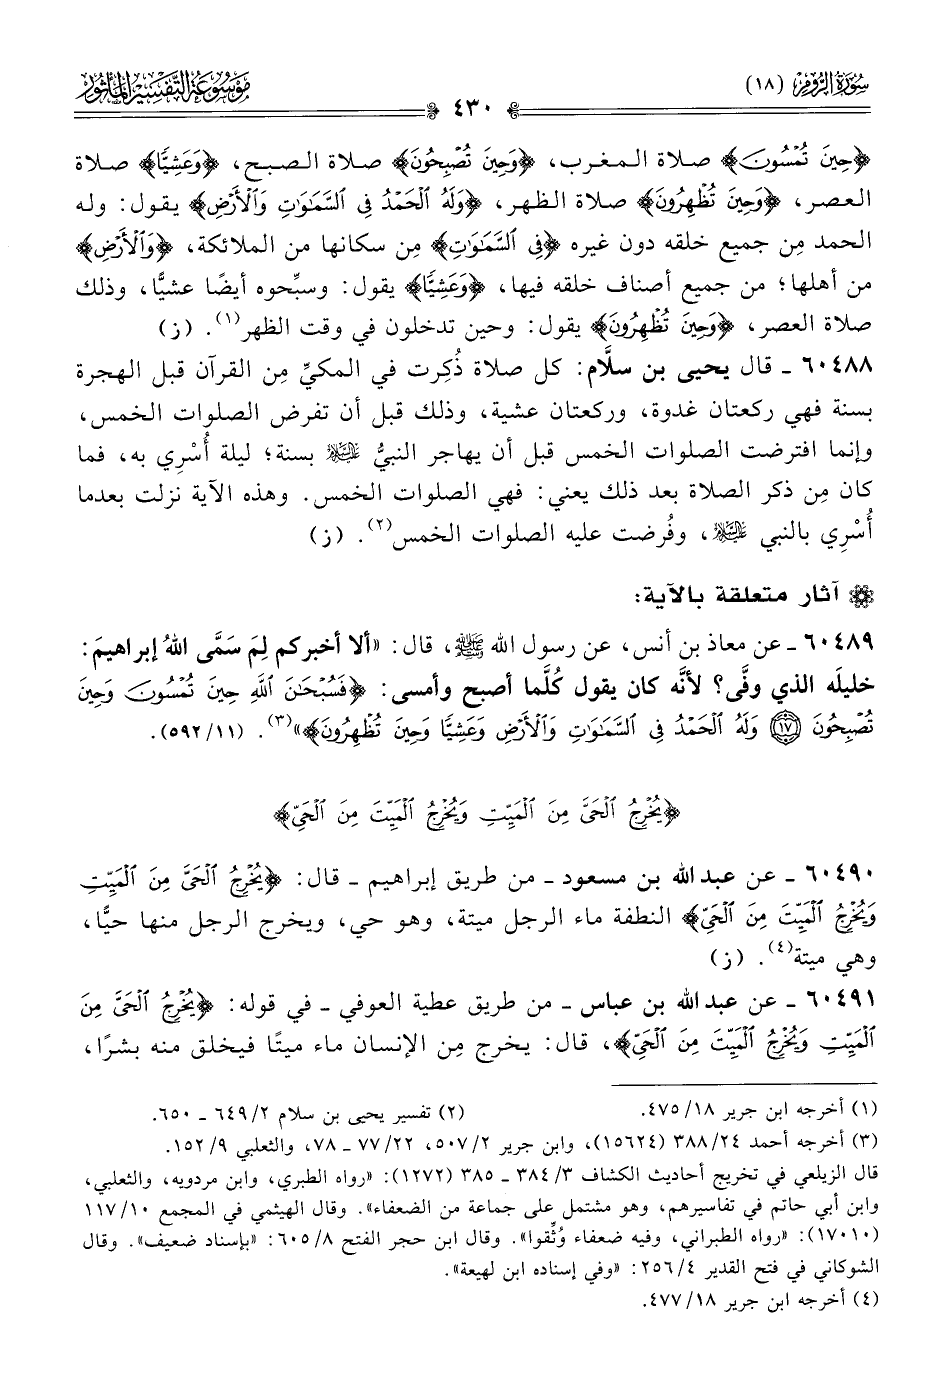 سُورَةُ الرُّومِ (١٨)
٤٣٠
مَوْسُوعَة التَّفْسِيرِ المَأثُور
﴿حِينَ تُمْسُونَ﴾ صلاة المغرب، ﴿وَحِينَ تُصْبِحُونَ﴾ صلاة الصبح، ﴿وَعَشِيًّا﴾ صلاة
العصر، ﴿وَحِينَ تُظْهِرُونَ﴾ صلاة الظهر، ﴿وَلَهُ الْحَمْدُ فِي السَّمَٰوَٰتِ وَالْأَرْضِ﴾ يقول: وله
الحمد مِن جميع خلقه دون غيره ﴿فِي السَّمَٰوَٰتِ﴾ مِن سكانها من الملائكة، ﴿وَالْأَرْضِ﴾
من أهلها؛ من جميع أصناف خلقه فيها، ﴿وَعَشِيًّا﴾ يقول: وسبِّحوه أيضًا عشيًّا، وذلك
صلاة العصر، ﴿وَحِينَ تُظْهِرُونَ﴾ يقول: وحين تدخلون في وقت الظهر(١). (ز)
٦٠٤٨٨ - قال يحيى بن سلَّام: كل صلاة ذُكِرت في المكيِّ مِن القرآن قبل الهجرة
بسنة فهي ركعتان غدوة، وركعتان عشية، وذلك قبل أن تفرض الصلوات الخمس،
وإنما افترضت الصلوات الخمس قبل أن يهاجر النبيُّ عليه السلام بسنة؛ ليلة أُسْرِي به، فما
كان مِن ذكر الصلاة بعد ذلك يعني: فهي الصلوات الخمس. وهذه الآية نزلت بعدما
أُسْرِي بالنبي عليه السلام، وفُرضت عليه الصلوات الخمس(٢). (ز)
آثار متعلقة بالآية:
٦٠٤٨٩ - عن معاذ بن أنس، عن رسول الله ﷺ، قال: «ألا أخبركم لِمَ سَمَّى اللهُ إبراهيمَ:
خليلَه الذي وفَّى؟ لأنَّه كان يقول كُلَّما أصبح وأمسى: ﴿فَسُبْحَٰنَ اللَّهِ حِينَ تُمْسُونَ وَحِينَ
تُصْبِحُونَ ١٧ وَلَهُ الْحَمْدُ فِي السَّمَٰوَٰتِ وَالْأَرْضِ وَعَشِيًّا وَحِينَ تُظْهِرُونَ﴾»(٣). (١١/ ٥٩٢).
﴿يُخْرِجُ الْحَيَّ مِنَ الْمَيِّتِ وَيُخْرِجُ الْمَيِّتَ مِنَ الْحَيِّ﴾
٦٠٤٩٠ - عن عبد الله بن مسعود - من طريق إبراهيم - قال: ﴿يُخْرِجُ الْحَيَّ مِنَ الْمَيِّتِ
وَيُخْرِجُ الْمَيِّتَ مِنَ الْحَيِّ﴾ النطفة ماء الرجل ميتة، وهو حي، ويخرج الرجل منها حيًّا،
وهي ميتة(٤). (ز)
٦٠٤٩١ - عن عبد الله بن عباس - من طريق عطية العوفي - في قوله: ﴿يُخْرِجُ الْحَيَّ مِنَ
الْمَيِّتِ وَيُخْرِجُ الْمَيِّتَ مِنَ الْحَيِّ﴾، قال: يخرج مِن الإنسان ماء ميتًا فيخلق منه بشرًا،
(١) أخرجه ابن جرير ١٨/ ٤٧٥.
(٢) تفسير يحيى بن سلام ٢/ ٦٤٩ - ٦٥٠.
(٣) أخرجه أحمد ٢٤/ ٣٨٨ (١٥٦٢٤)، وابن جرير ٢/ ٥٠٧، ٢٢/ ٧٧ - ٧٨، والثعلبي ٩/ ١٥٢.
قال الزيلعي في تخريج أحاديث الكشاف ٣/ ٣٨٤ - ٣٨٥ (١٢٧٢): «رواه الطبري، وابن مردويه، والثعلبي،
وابن أبي حاتم في تفاسيرهم، وهو مشتمل على جماعة من الضعفاء». وقال الهيثمي في المجمع ١٠/ ١١٧
(١٧٠١٠): «رواه الطبراني، وفيه ضعفاء وُثِّقوا». وقال ابن حجر الفتح ٨/ ٦٠٥: «بإسناد ضعيف». وقال
الشوكاني في فتح القدير ٤/ ٢٥٦: «وفي إسناده ابن لهيعة».
(٤) أخرجه ابن جرير ١٨/ ٤٧٧.